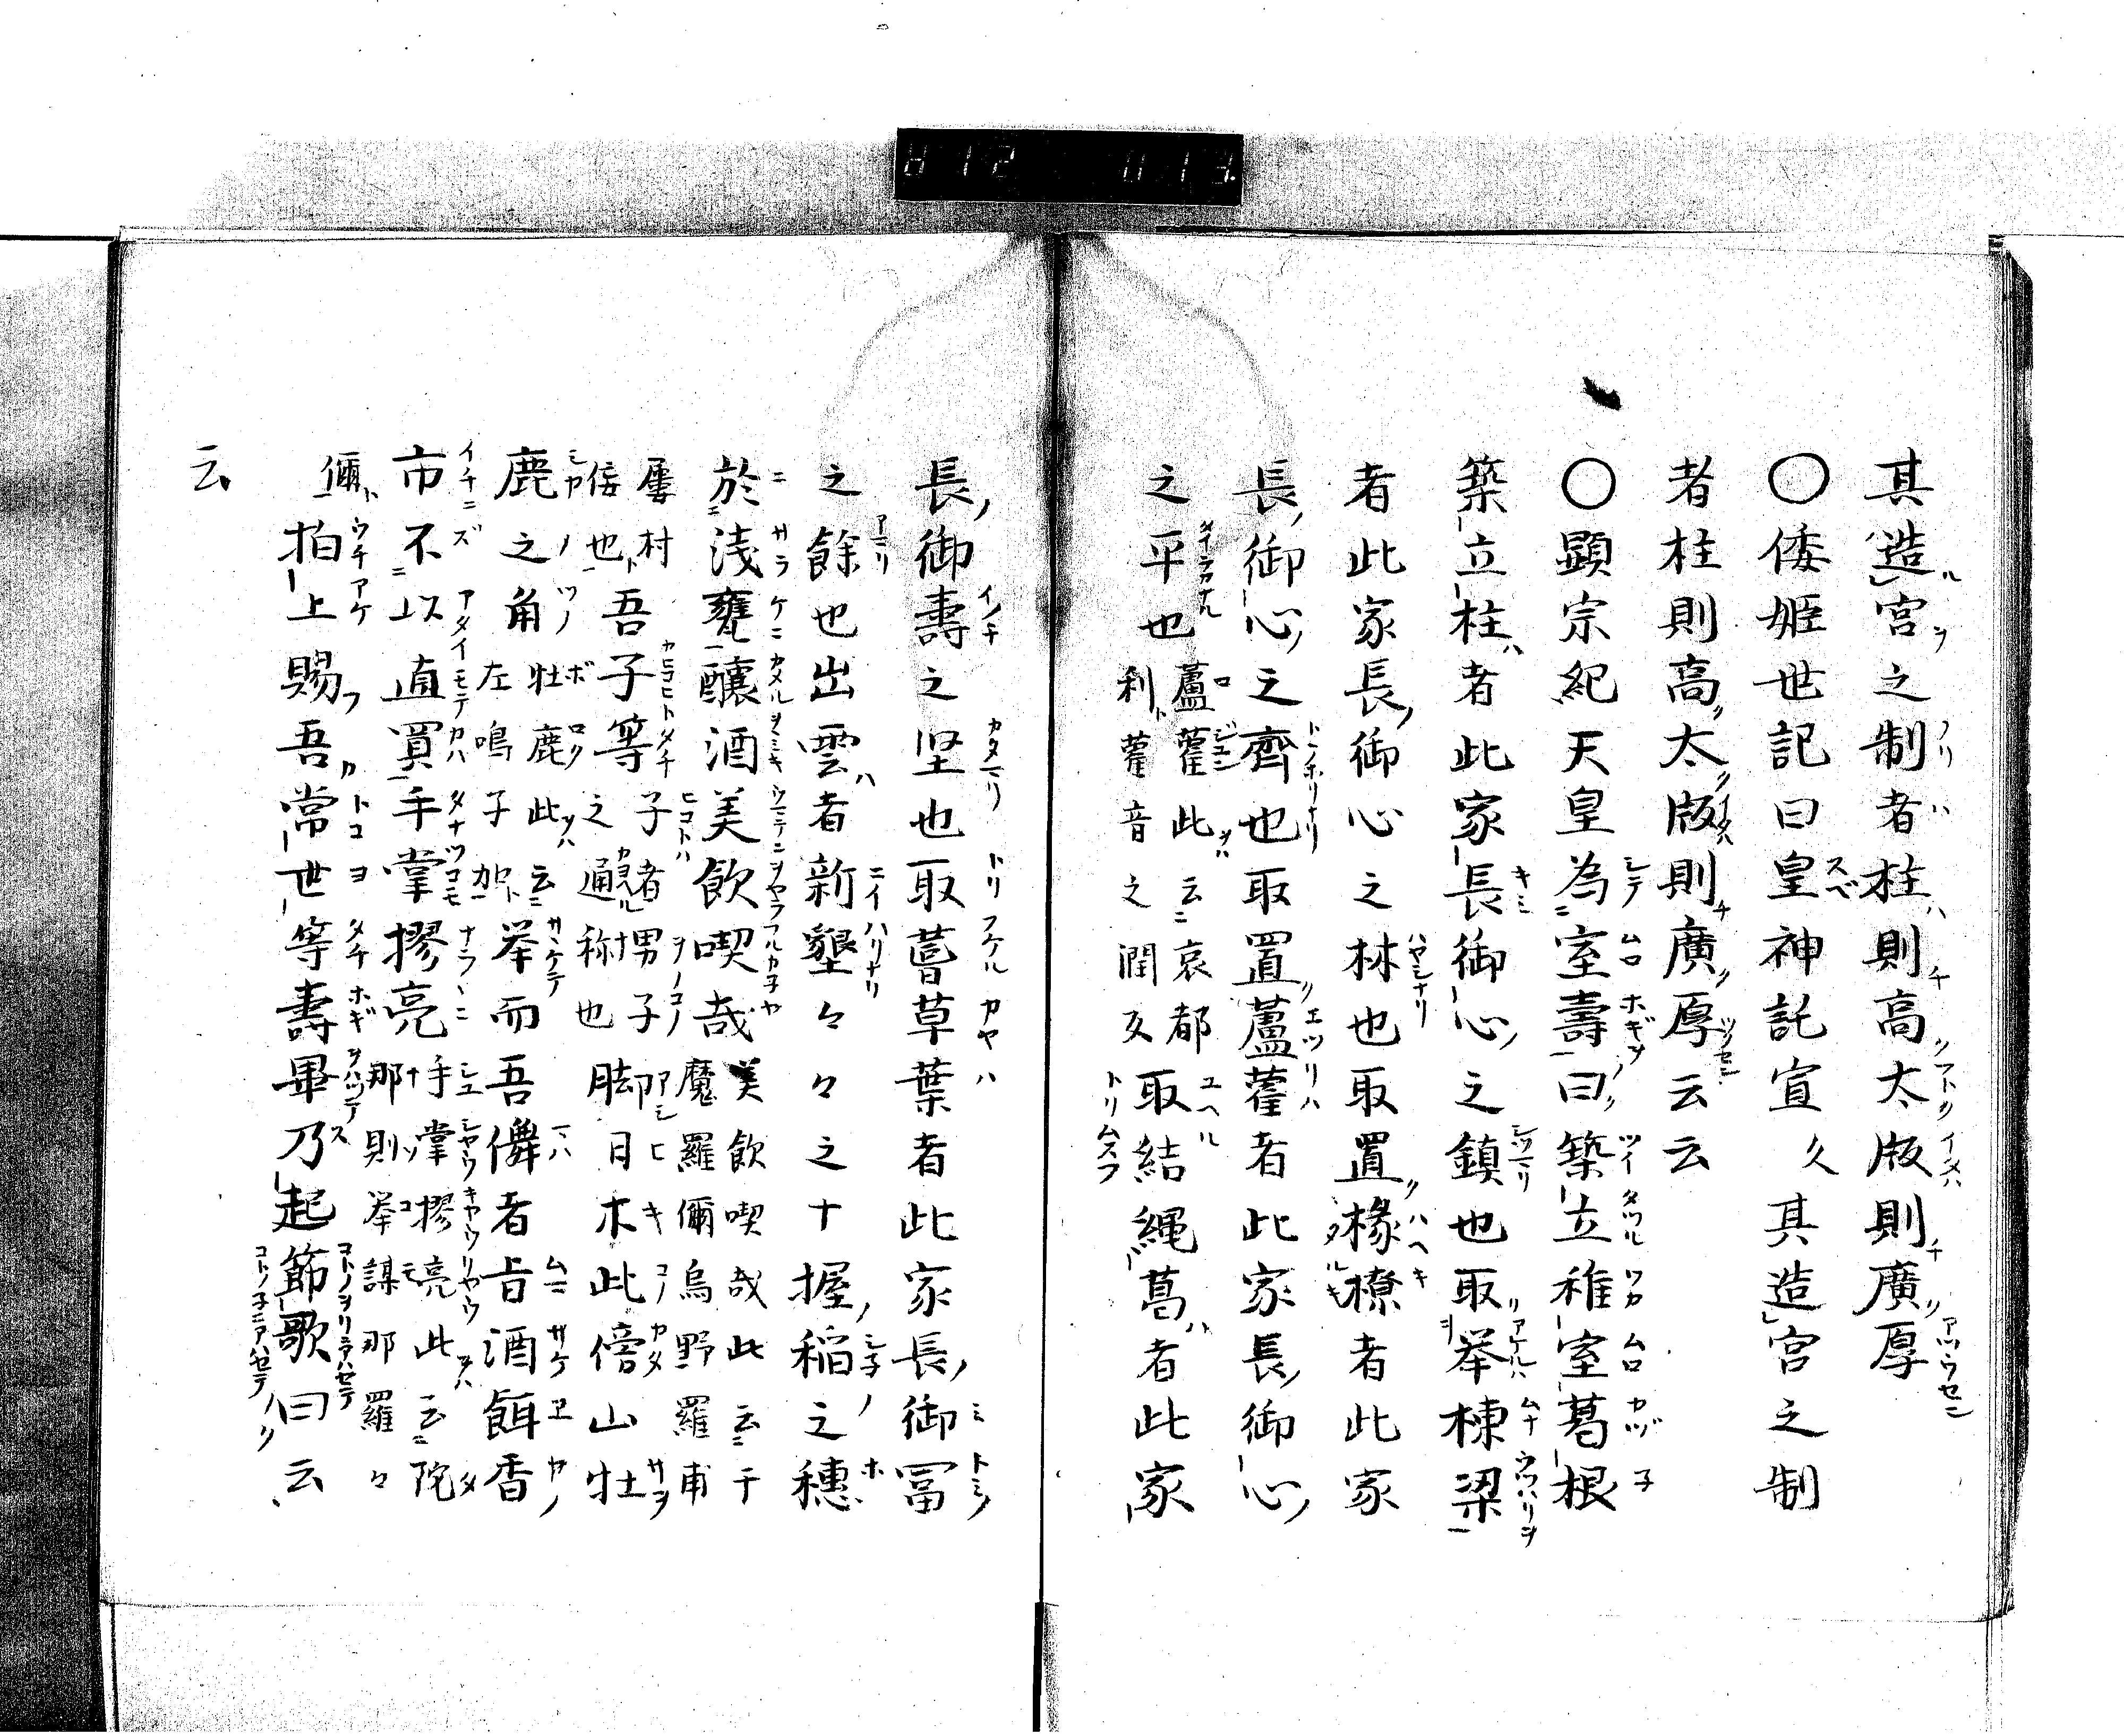 其造宮之制者柱則高太版則廣厚
〇倭姫世記曰皇神託宣久其造宮之制
者柱則高太版則廣厚云云
〇顕宗紀天皇為室壽曰築立稚室葛根
築立柱者此家長御心之鎮也取挙棟梁
者此家長御心之林也取置椽橑者此家
長御心之齊也取置蘆雚者此家長御心
之平也蘆雚此云哀都
利雚音之潤反取結縄葛者此家
長御壽之坚也取葺草葉者此家長御冨
之餘也出雲者新墾々々之十握稲之穗
於淺甕醸酒美飲喫哉美飲喫哉此云于
魔羅儞烏野羅甫
屢柯倭也吾子等子者男子
之通称也脚日木此傍山牡
鹿之角牡鹿此云
左鳴子加挙而吾儛者旨酒餌香
市不以直買手掌摎亮手掌摎亮此云陀
那則挙謀那羅々
儞拍上賜吾常世等壽畢乃起節歌曰云
云